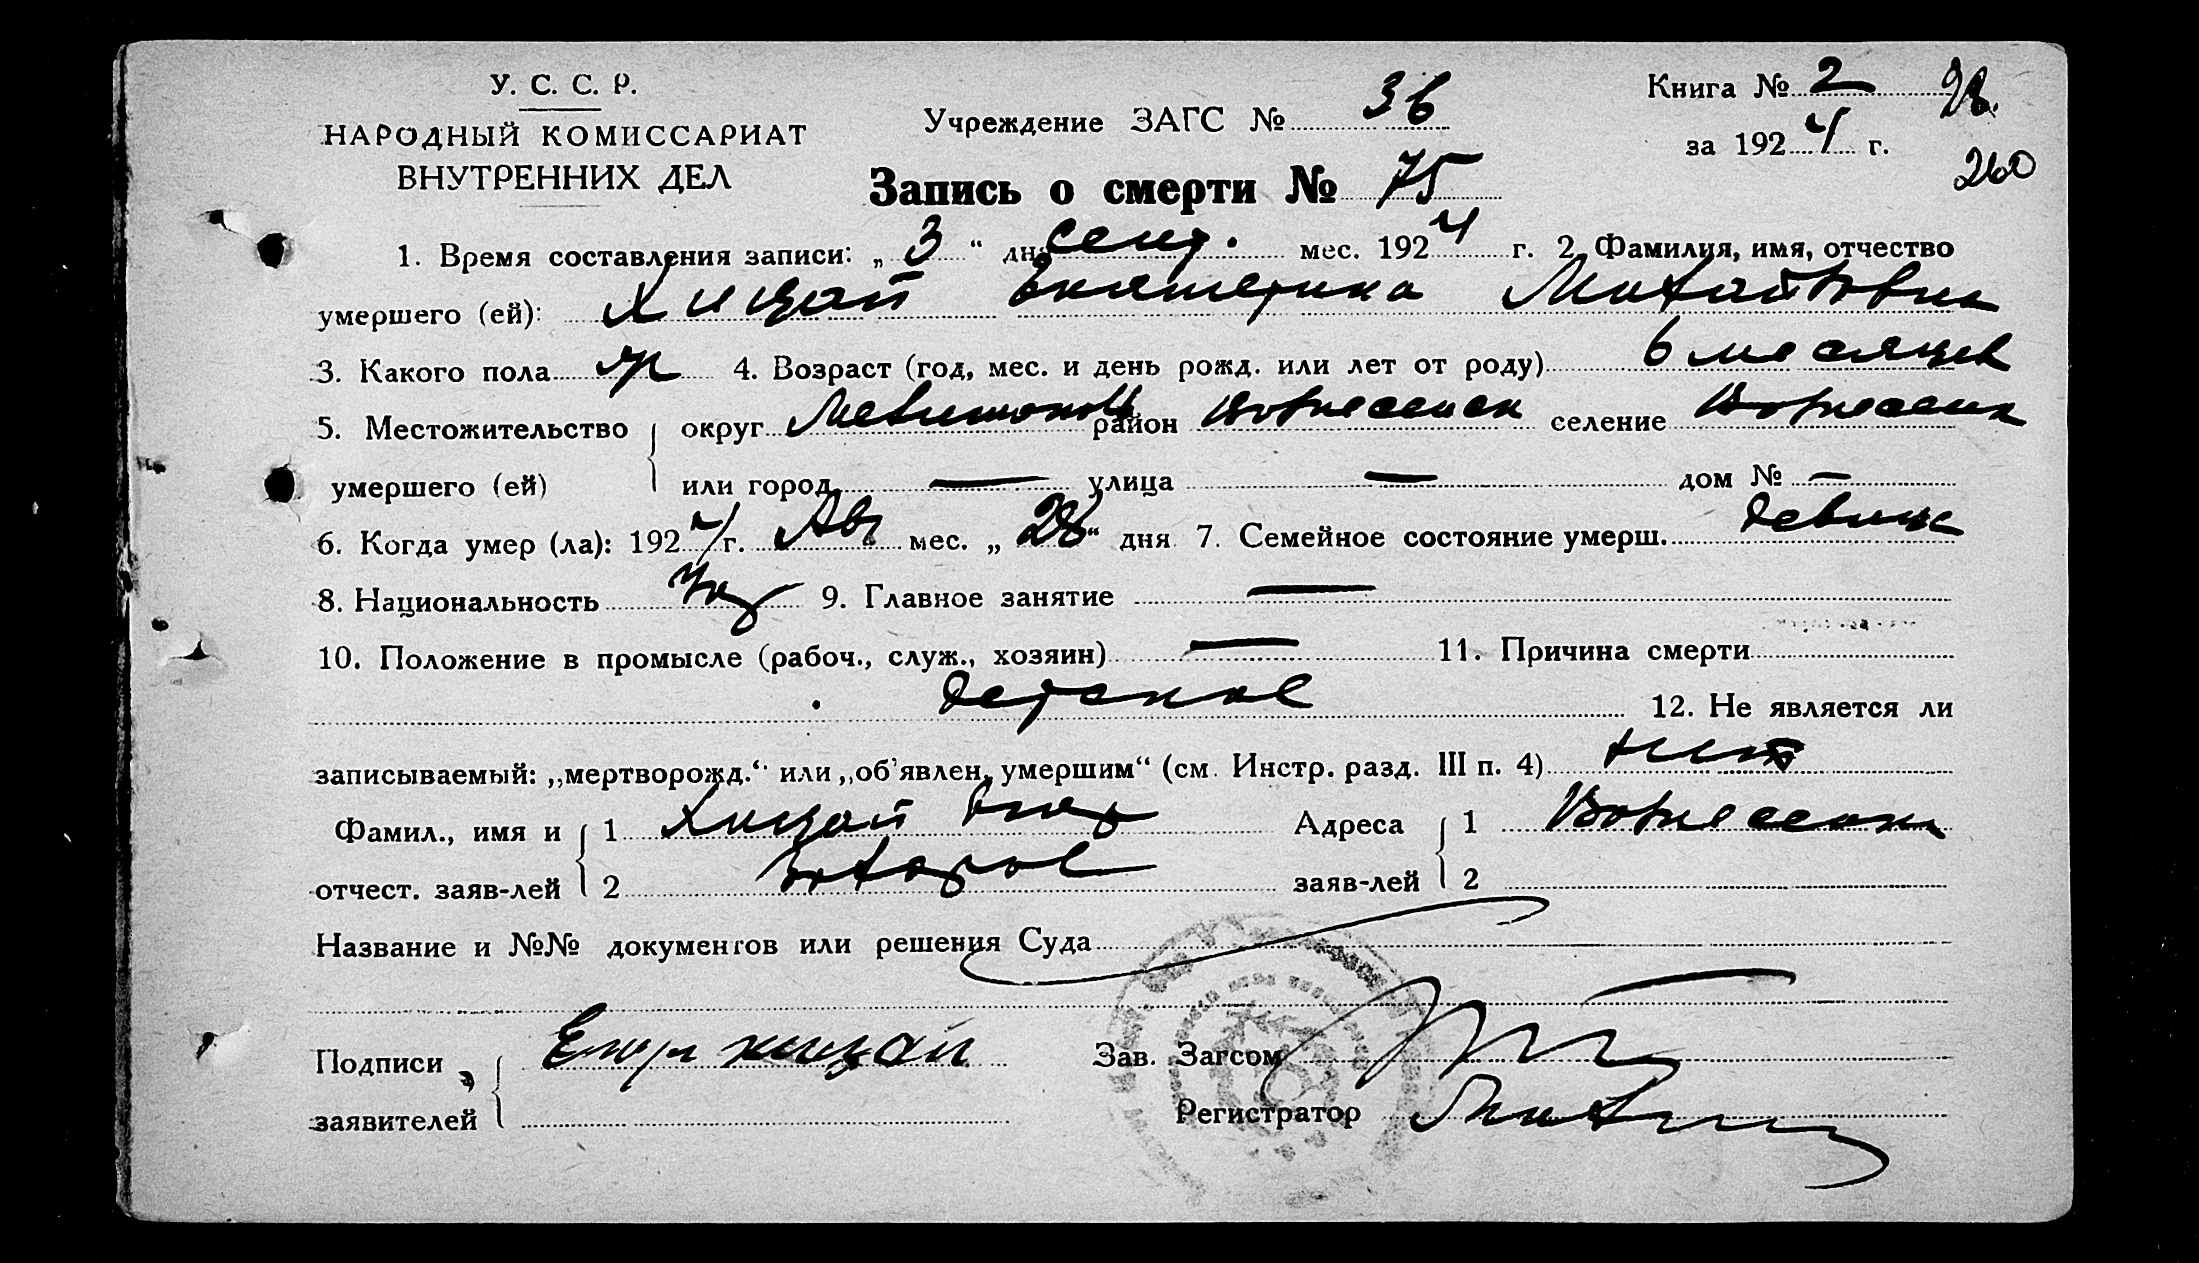 У. С. С. Р.
НАРОДНЫЙ КОМИССАРИАТ
ВНУТРЕННИХ ДЕЛ
Учреждение ЗАГС № 36
Книга № 2
за 1924 г.
260
Запись о смерти № 75
1. Время составления записи: „ 3 “ дня сент. мес. 1924 г. 2. Фамилия, имя, отчество
умершего (ей): Хицай Екатерина Михайловна
3. Какого пола 4. Возраст (год, мес. и день рожд. или лет от роду) 6 месяцев
5. Местожительство округ район Вознесенск селение Вознесенк
умершего (ей) или город — улица — дом № —
6. Когда умер (ла): 1924 г. Авг мес. „ 28 “ дня 7. Семейное состояние умерш. девица
8. Национальность Укр 9. Главное занятие —
10. Положение в промысле (рабоч., служ., хозяин) — 11. Причина смерти
детское 12. Не является ли
записываемый: „мертворожд.“ или „об'явлен. умершим“ (см. Инстр. разд. III п. 4) нет
Фамил., имя и 1 Хицай Адреса 1 Вознесенк
отчест. заяв-лей 2 заяв-лей 2
Название и №№ документов или решения Суда
Подписи хицай Зав. Загсом
заявителей Регистратор